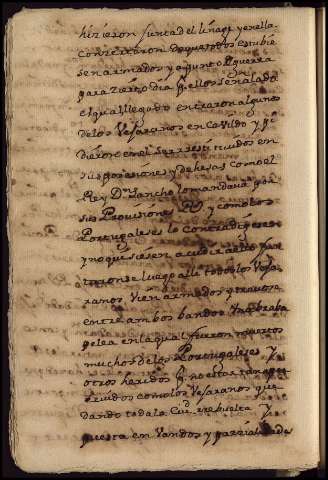 hizieron junta del linage y en ella
concertaron de que todos estubie
sen armados y a punto de guerra
para zierto dia q̃ ellos señalado
el qual llegado entraron algunos
de los Vejaranos en Cavildo y pi
dieron en el ser restituidos en
sus posesiones y dehesas como el
Rey Dn Sancho lo mandava por
sus Provisiones Rs y como los
Portugaleses lo contradigesen
y no quisiesen acudir a ello
luego alli todos los Veja
ranos bien armados y travose
entre ambos bandos Una braba
pelea en la qual fueron muertos
muchos de los Portugaleses y
otros heridos q̃ no estar tan aper
cevidos como los Vejaranos que
dando toda la Ciud rebuelta y
puesta en Vandos y parzialidades